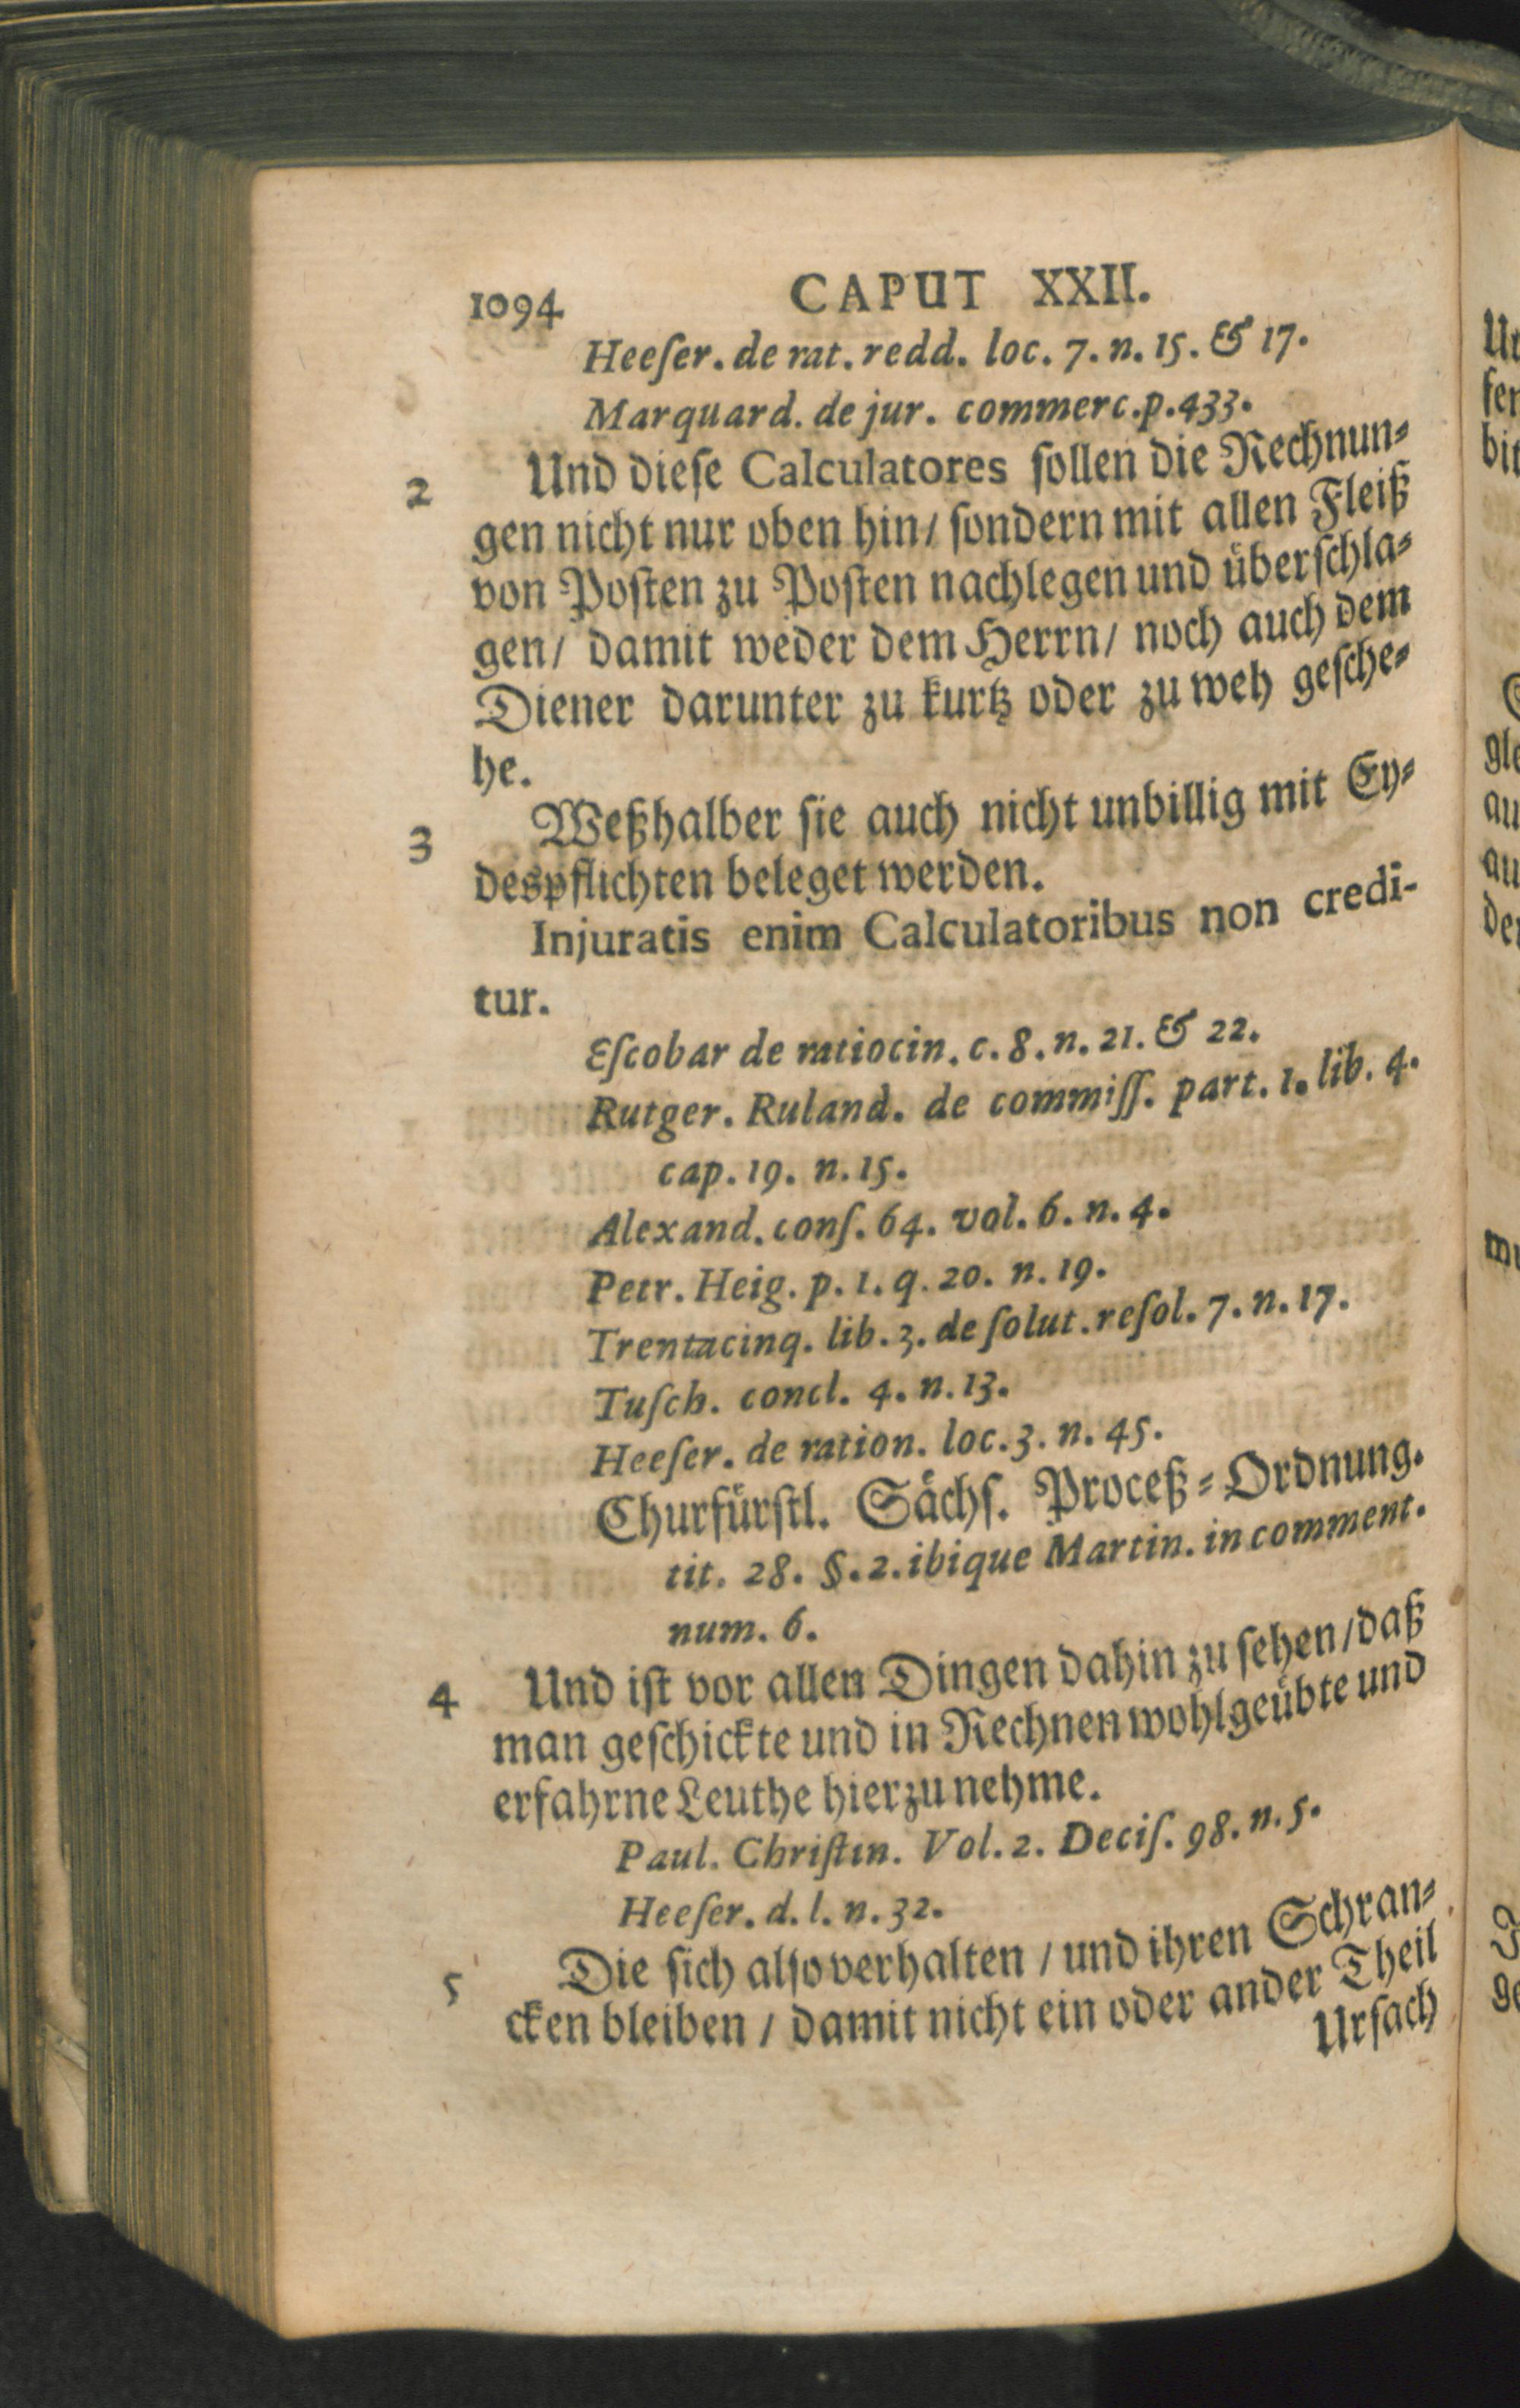 1094 CAPUT XXII.
Heeſer. de rat. redd. loc. 7. n. 15. & 17.
Marquard. de jur. commerc. p. 433.
2 Und dieſe Calculatores ſollen die Rechnun⸗
gen nicht nur oben hin/ ſondern mit allen Fleiß
von Poſten zu Poſten nachlegen und überſchla⸗
gen/ damit weder dem Herrn/ noch auch dem
Diener darunter zu kurtz oder zu weh geſche⸗
he.
3 Weßhalber ſie auch nicht unbillig mit Ey⸗
despflichten beleget werden.
Injuratis enim Calculatoribus non credi-
tur.
Eſcobar de ratiocin. c. 8. n. 21. & 22.
Rutger. Ruland. de commiſſ. part. 1. lib. 4.
cap. 19. n. 15.
Alexand. conſ. 64. vol. 6. n. 4.
Petr. Heig. p. 1. q. 20. n. 19.
Trentacinq. lib. 3. de ſolut. reſol. 7. n. 17.
Tuſch. concl. 4. n. 13.
Heeſer. de ration. loc. 3. n. 45.
Churfürſtl. Sächſ. Proceß⸗Ordnung.
tit. 28. §. 2. ibique Martin. in comment.
num. 6.
4 Und iſt vor allen Dingen dahin zu ſehen/ daß
man geſchickte und in Rechnen wohlgeübte und
erfahrne Leuthe hierzu nehme.
Paul. Chriſtin. Vol. 2. Deciſ. 98. n. 5.
Heeſer. d. l. n. 32.
5 Die ſich alſo verhalten / und ihren Schran⸗
cken bleiben / damit nicht ein oder ander Theil
Urſach